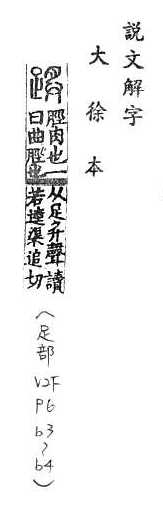 說文解字
大徐本
脛肉也一
曰曲脛也
从足聲讀
若逵渠追切
(足部 V2F P6 b3~b4)